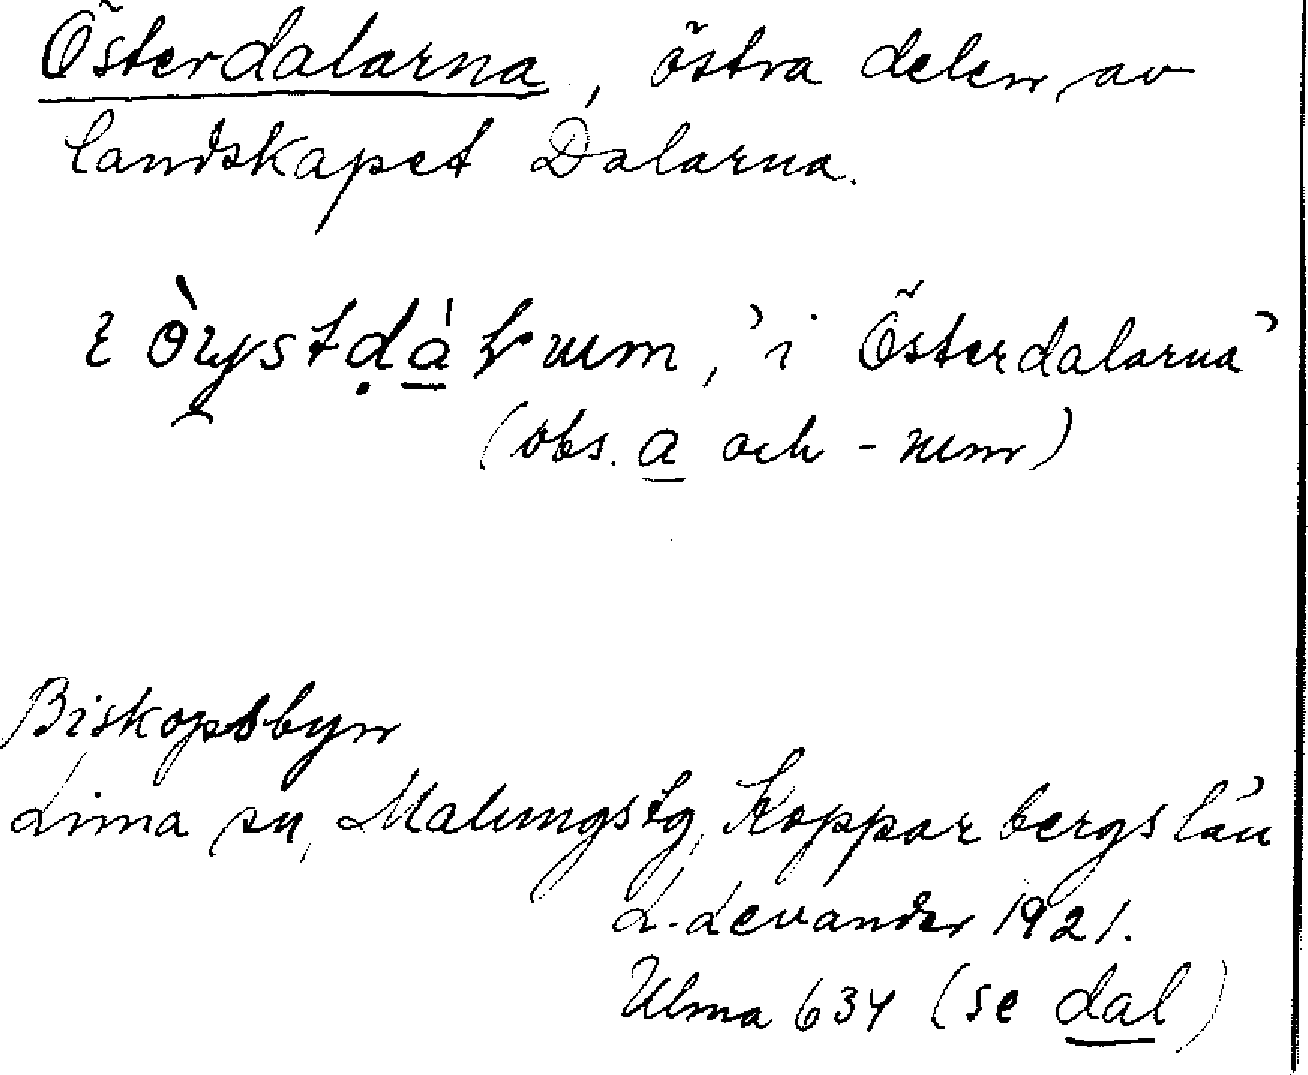 Österdalarna, östra delen av
landskapet Dalarna.
'i Österdalarna'
(obs. a och -um)
Biskopsbyn
Lima sn, Malungs tg, Kopparbergs län
L. Levander 1921.
Ulma 634 (se dal)